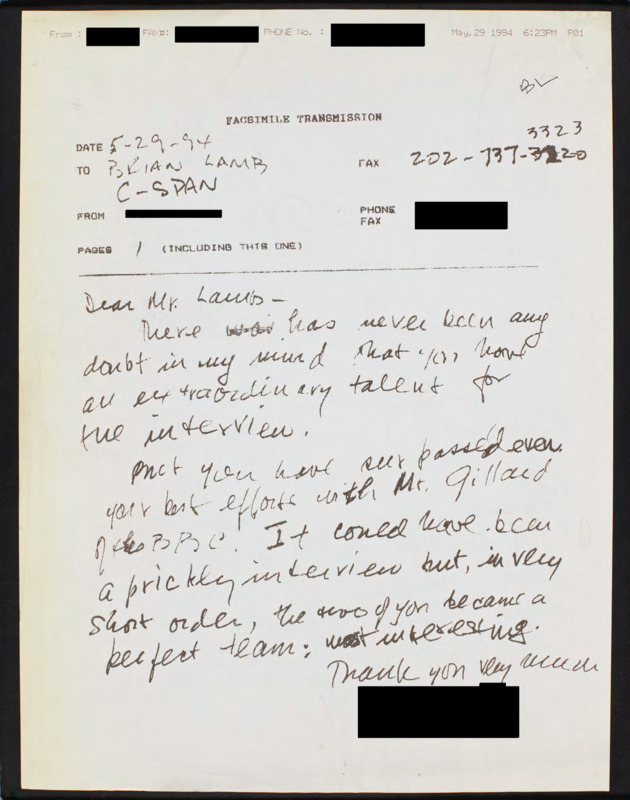 From : FAX#: PHONE No. : May. 29 1994 6:23PM P01
BL
FACSIMILE TRANSMISSION
3323
DATE 5-29-94
TO BRIAN LAMB FAX 202-737-3220
C-SPAN
FROM PHONE
FAX
PAGES 1 (INCLUDING THIS ONE)
Dear Mr. Lamb-
There has never been any
doubt in my mind that you have
an extraordinary talent for
the interview.
But you have surpassed even
your best efforts with Mr. Gillard
of the BBC. It could have been
a prickly interview but, in very
short order, the two of you became a
perfect team: most interesting.
Thank you very much